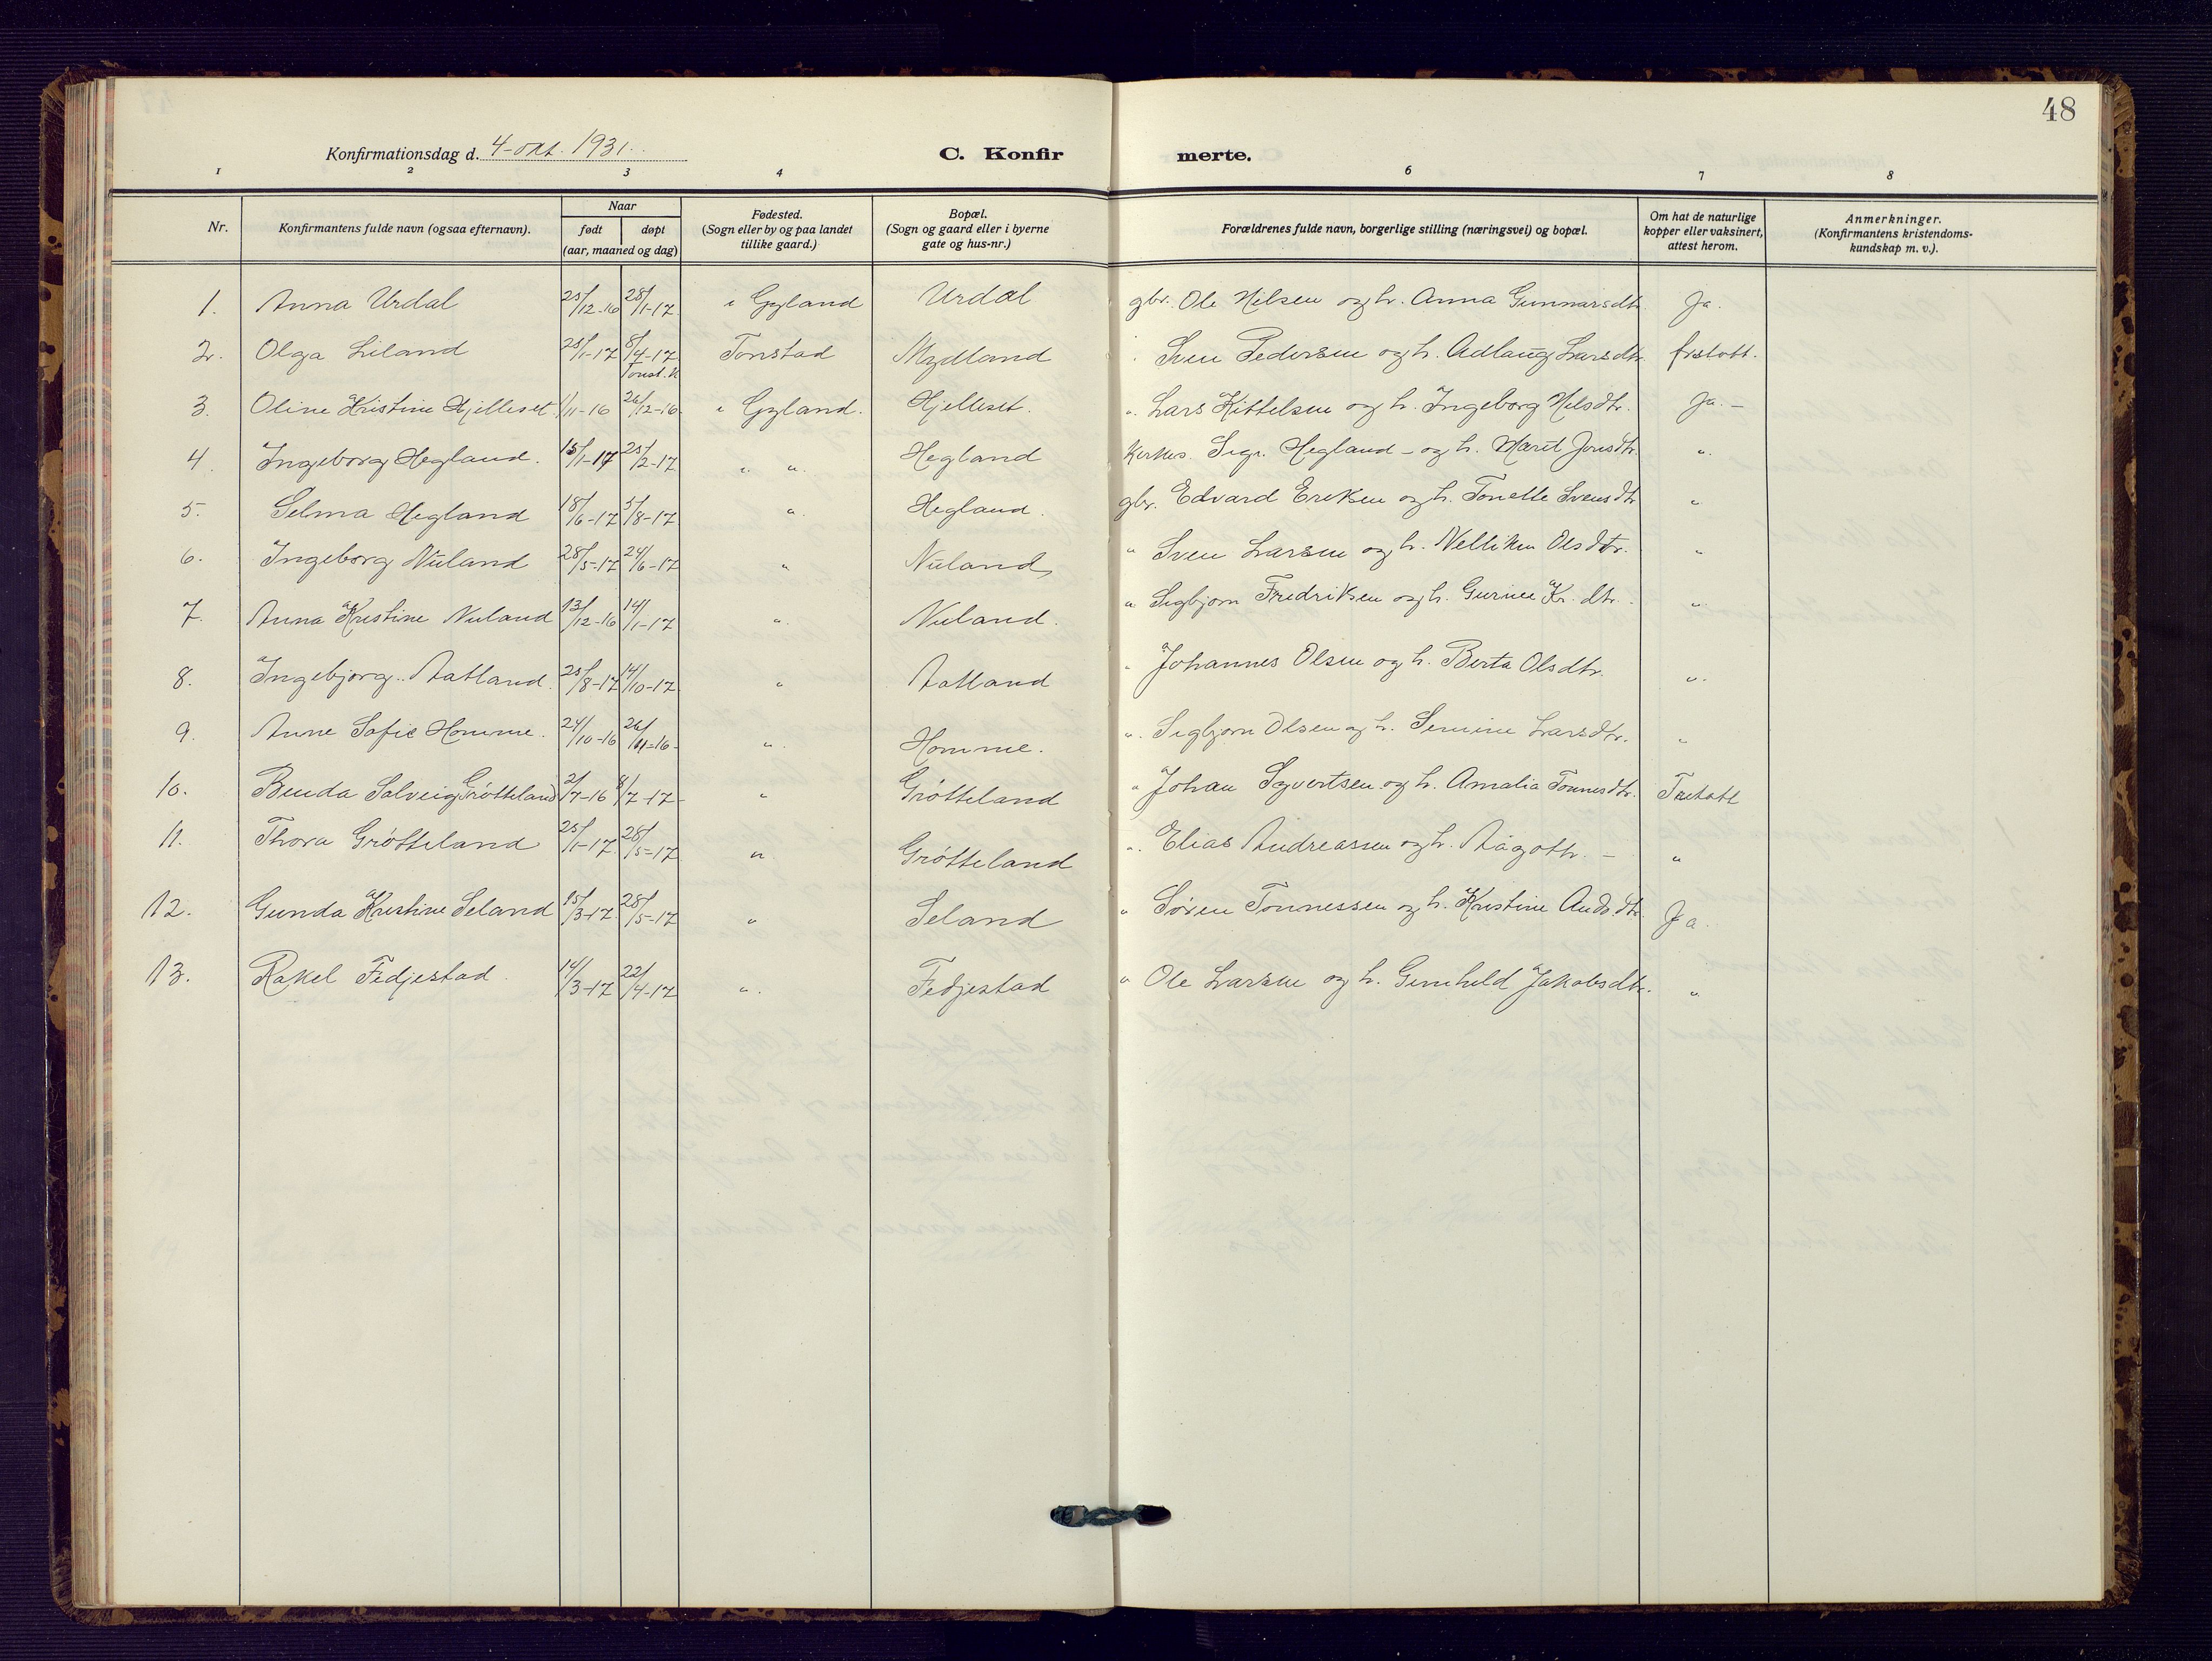 48
Konfirmationsdag d. 4-okt. 1931.
C. Konfirmerte.
1 2 3 4 6 7 8
Nr. Konfirmantens fulde navn (ogsaa efternavn). Naar født døpt (aar, maaned og dag) Fødested. (Sogn eller by og paa landet tillike gaard.) Bopæl. (Sogn og gaard eller i byerne gate og hus-nr.) Forældrenes fulde navn, borgerlige stilling (næringsvei) og bopæl. Om hat de naturlige kopper eller vaksinert, attest herom. Anmerkninger. (Konfirmantens kristendomskundskap m. v.).
1. Anna Urdal 25/12-16 28/1-17 i Gyland Urdal gbr. Ole Nilsen og h. Anna Gunnarsdtr. Ja.
2. Olga Liland 25/1-17 8/4-17 Tonst. k Tonstad Mydland " Sven Pedersen og h. Adlaug Larsdtr. frstatt.
3. Oline Kristine Hjelleset 1/11-16 26/12-16 i Gyland. Hjelleset. " Lars Kittelsen og h. Ingeborg Nilsdtr. Ja. -
4. Ingeborg Hegland. 15/1-17 25/2-17 " " Hegland Kirkes. Sigv. Hegland - og h. Marit Jonsdtr. "
5. Selma Hegland 18/6-17 5/8-17 " Hegland. gbr. Edvard Eriksen og h. Tonette Svensdtr "
6. Ingeborg Nuland 28/5-17 24/6-17 " Nuland " Sven Larsen og h. Nelliken Olsdtr. "
7. Anna Kristine Nuland 13/12-16 14/1-17 " Nuland. " Sigbjørn Fredriksen og h. Gurine Kr. dtr. "
8. Ingebjørg Aatland. 25/8-17 14/10-17 " Aatland " Johannes Olsen og h. Berta Olsdtr. "
9. Anne Sofie Homme. 24/10-16 26/11-16 " Homme. " Sigbjørn Olsen og h. Semine Larsdtr. "
10. Benda Solveig Grøtteland 2/7-16 8/7-17 " Grøtteland " Johan Syvertsen og h. Amalia Tønnesdtr.
11. Thora Grøtteland 25/1-17 28/5-17 " Grøtteland " Elias Andreassen og h. Aagoth. - "
12. Gunda Kristine Seland 15/3-17 28/5-17 " Seland " Søren Tønnessen og h. Kristine Ands.dtr. Ja.
13. Rakel Fedjestad 14/3-17 22/4-17 " Fedjestad " Ole Larsen og h. Gunhild Jakobsdtr. "